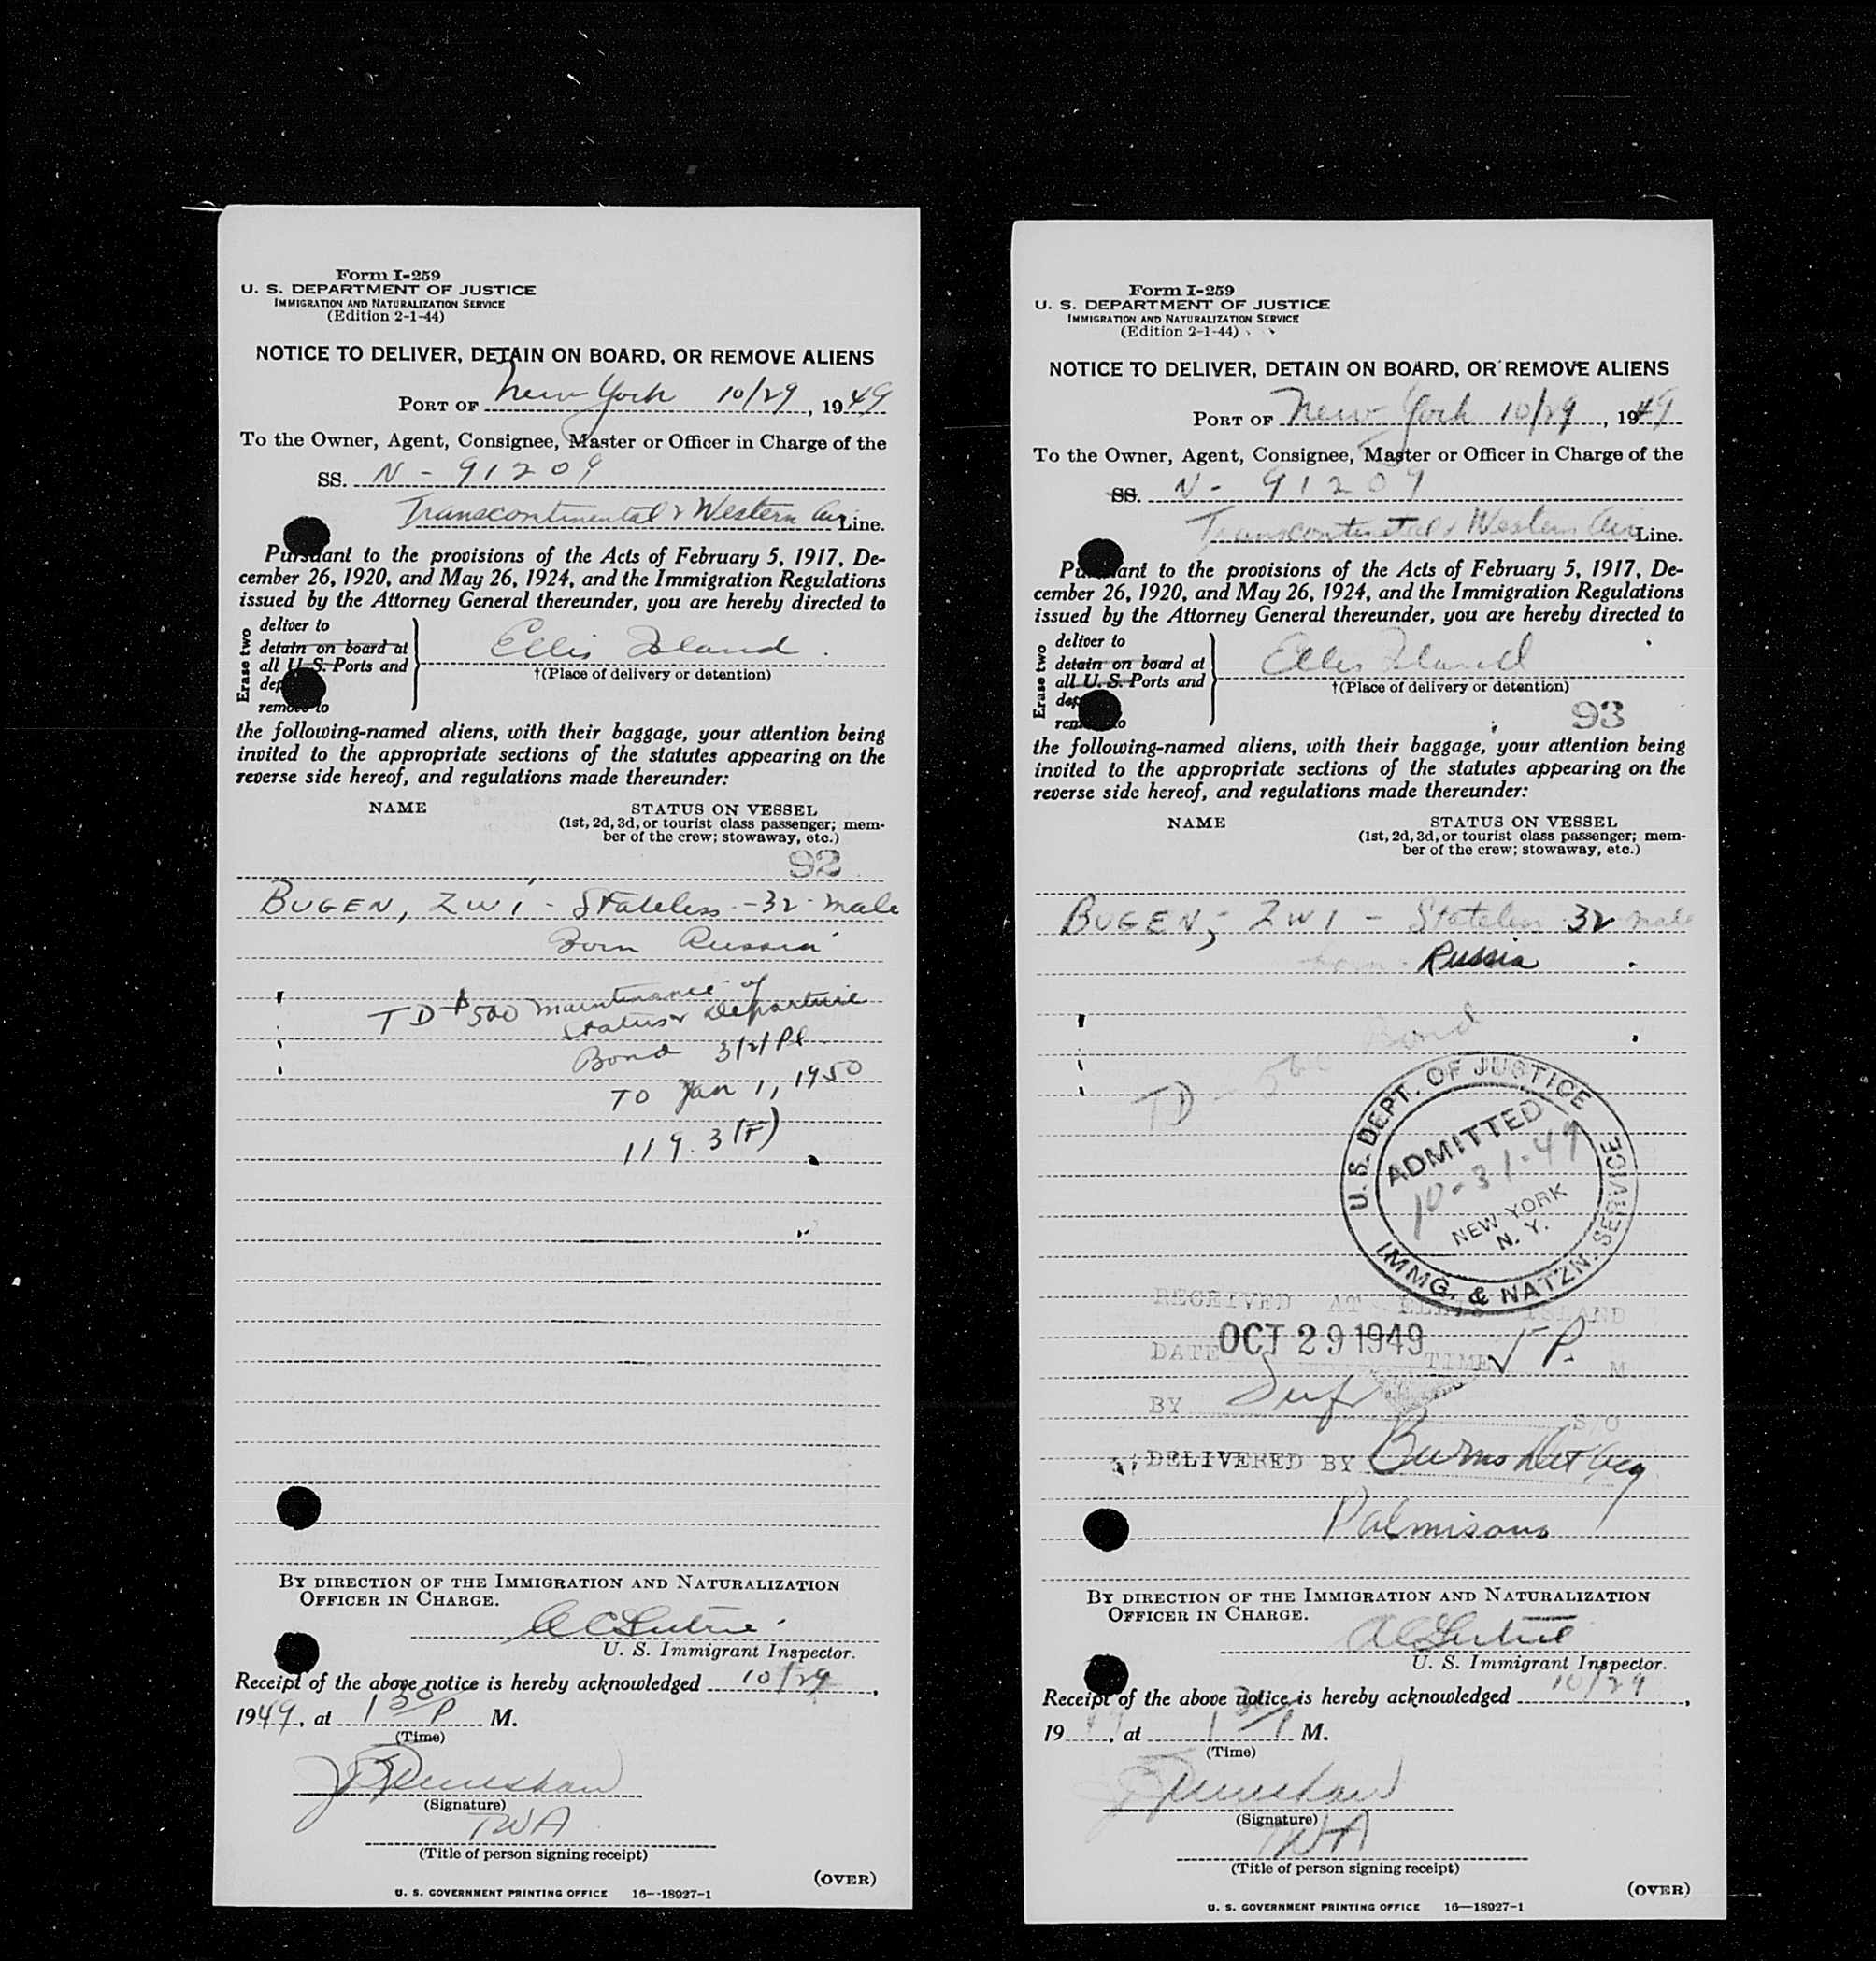 Form I-259
U. S. DEPARTMENT OF JUSTICE
IMMIGRATION AND NATURALIZATION SERVICE
(Edition 2-1-44)
NOTICE TO DELIVER, DETAIN ON BOARD, OR REMOVE ALIENS
PORT OF New York 10/29, 1949
To the Owner, Agent, Consignee, Master or Officer in Charge of the
SS. N - 91209
Transcontinental & Western Air Line.
Pursuant to the provisions of the Acts of February 5, 1917, De-
cember 26, 1920, and May 26, 1924, and the Immigration Regulations
issued by the Attorney General thereunder, you are hereby directed to
Erase two
deliver to
detain on board at
all U. S. Ports and
dep
remove to
Ellis Island
†(Place of delivery or detention)
the following-named aliens, with their baggage, your attention being
invited to the appropriate sections of the statutes appearing on the
reverse side hereof, and regulations made thereunder:
NAME STATUS ON VESSEL
(1st, 2d, 3d, or tourist class passenger; mem-
ber of the crew; stowaway, etc.)
92
BUGEN, ZWI - Stateless - 32 - male
Born Russia
TD $500 maintenance of
status & Departure
Bond 3/2/Pl
TO Jan 1, 1950
119.3(F)
BY DIRECTION OF THE IMMIGRATION AND NATURALIZATION
OFFICER IN CHARGE.
U. S. Immigrant Inspector.
Receipt of the above notice is hereby acknowledged 10/29,
1949, at 1 30/P M.
(Time)
(Signature)
TWA
(Title of person signing receipt)
(OVER)
U. S. GOVERNMENT PRINTING OFFICE 16--18927-1
Form I-259
U. S. DEPARTMENT OF JUSTICE
IMMIGRATION AND NATURALIZATION SERVICE
(Edition 2-1-44)
NOTICE TO DELIVER, DETAIN ON BOARD, OR REMOVE ALIENS
PORT OF New York 10/29, 1949
To the Owner, Agent, Consignee, Master or Officer in Charge of the
SS. N - 91209
Transcontinental & Western Air Line.
Pursuant to the provisions of the Acts of February 5, 1917, De-
cember 26, 1920, and May 26, 1924, and the Immigration Regulations
issued by the Attorney General thereunder, you are hereby directed to
Erase two
deliver to
detain on board at
all U. S. Ports and
dep
remove to
Ellis Island
†(Place of delivery or detention)
93
the following-named aliens, with their baggage, your attention being
invited to the appropriate sections of the statutes appearing on the
reverse side hereof, and regulations made thereunder:
NAME STATUS ON VESSEL
(1st, 2d, 3d, or tourist class passenger; mem-
ber of the crew; stowaway, etc.)
BUGEN, ZWI - Stateless 32 male
born - Russia
TD - 500 Bond
U. S. DEPT. OF JUSTICE
ADMITTED
10-31-49
NEW YORK
N. Y.
IMMG. & NATZN. SERVICE
RECEIVED AT ELLIS ISLAND
DATE OCT 29 1949 TIME P. M
BY S/O
DELIVERED BY Burns Det Agy
Palmisano
BY DIRECTION OF THE IMMIGRATION AND NATURALIZATION
OFFICER IN CHARGE.
U. S. Immigrant Inspector.
Receipt of the above notice is hereby acknowledged 10/29,
1949, at 1 30/P M.
(Time)
(Signature)
TWA
(Title of person signing receipt)
(OVER)
U. S. GOVERNMENT PRINTING OFFICE 16—18927-1